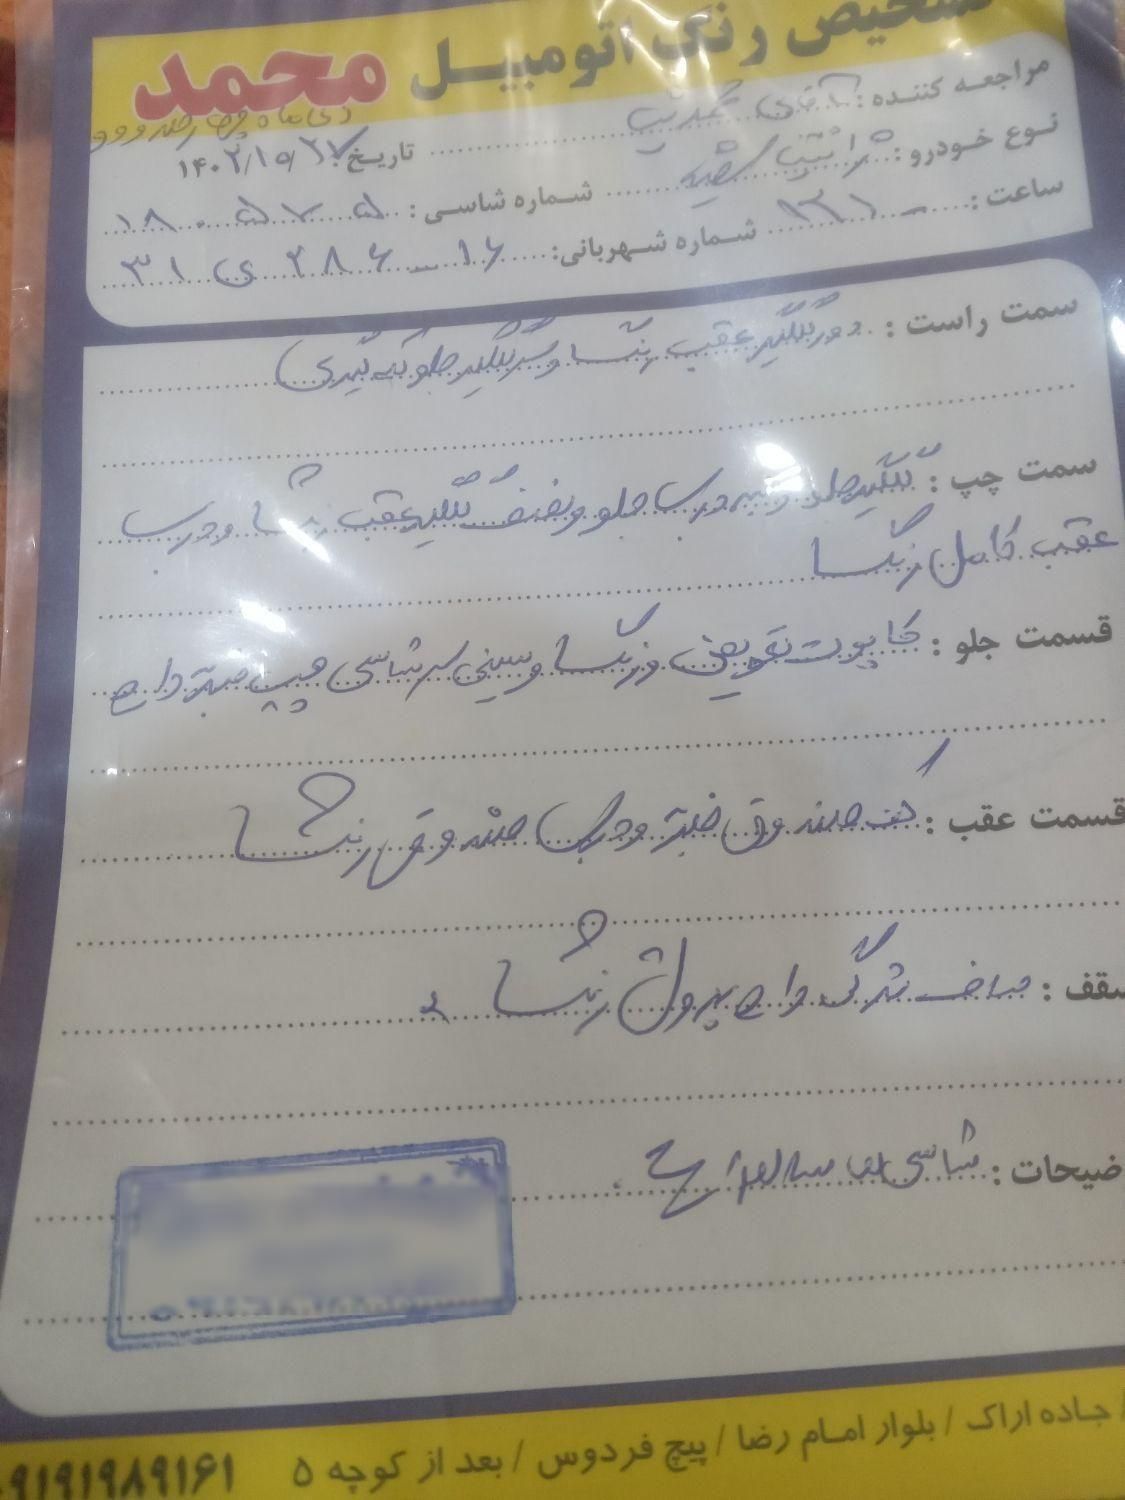 تشخیص رنگ اتومبیل محمد
مراجعه کننده: آقای
دی ماه چهارصد و دو
تاریخ: ۱۴۰۲/۱۰/
نوع خودرو:
شماره شاسی: ۱۸۰۵۷۵
ساعت: ۱۲۱۰
شماره شهربانی: ۱۶ - ۲۸۶ ی ۳۱
سمت راست: دور گلگیر عقب رنگ و سر گلگیر جلو لکه گیری
سمت چپ: گلگیر جلو و لبه درب جلو و نصف گلگیر عقب رنگ و درب
عقب کامل رنگ
قسمت جلو: کاپوت تعویض و رنگ و سینی سر شاسی چپ ضربه دارد
قسمت عقب: کف صندوق ضربه و درب صندوق رنگ
سقف: صاف تگرگی دارد بدون رنگ
توضیحات: شاسی ها سالم
جاده اراک / بلوار امام رضا / پیچ فردوس / بعد از کوچه ۵
۰۹۱۹۱۹۸۹۱۶۱